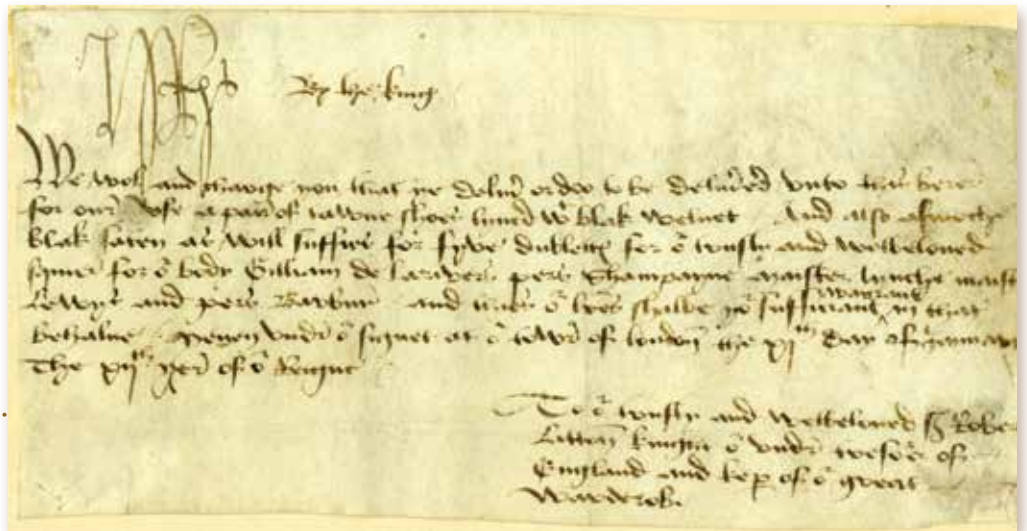 By the king
We wol and charge you that ye deliu' or doo to be deliu'ed vnto this berer
for our wife a pair of tawne shoes lined wt blak veluet And also asmoche
blak saten as will suffice for fyve dublett for o' trusty and welbeloued
for o' body Gilliam de pers Champayne maister
lewys and pers Barbour And thies o' l'res shalbe yo' suffisaunt warrant in that
behalue Yeuen vndre o' signet at o' towre of london the xjth day of January
The xijth yere of o' Reigne
To o' trusty and welbeloued sr Robert
Litton knight o' vndre treso'er of
England and kep' of o' great
Warderobe